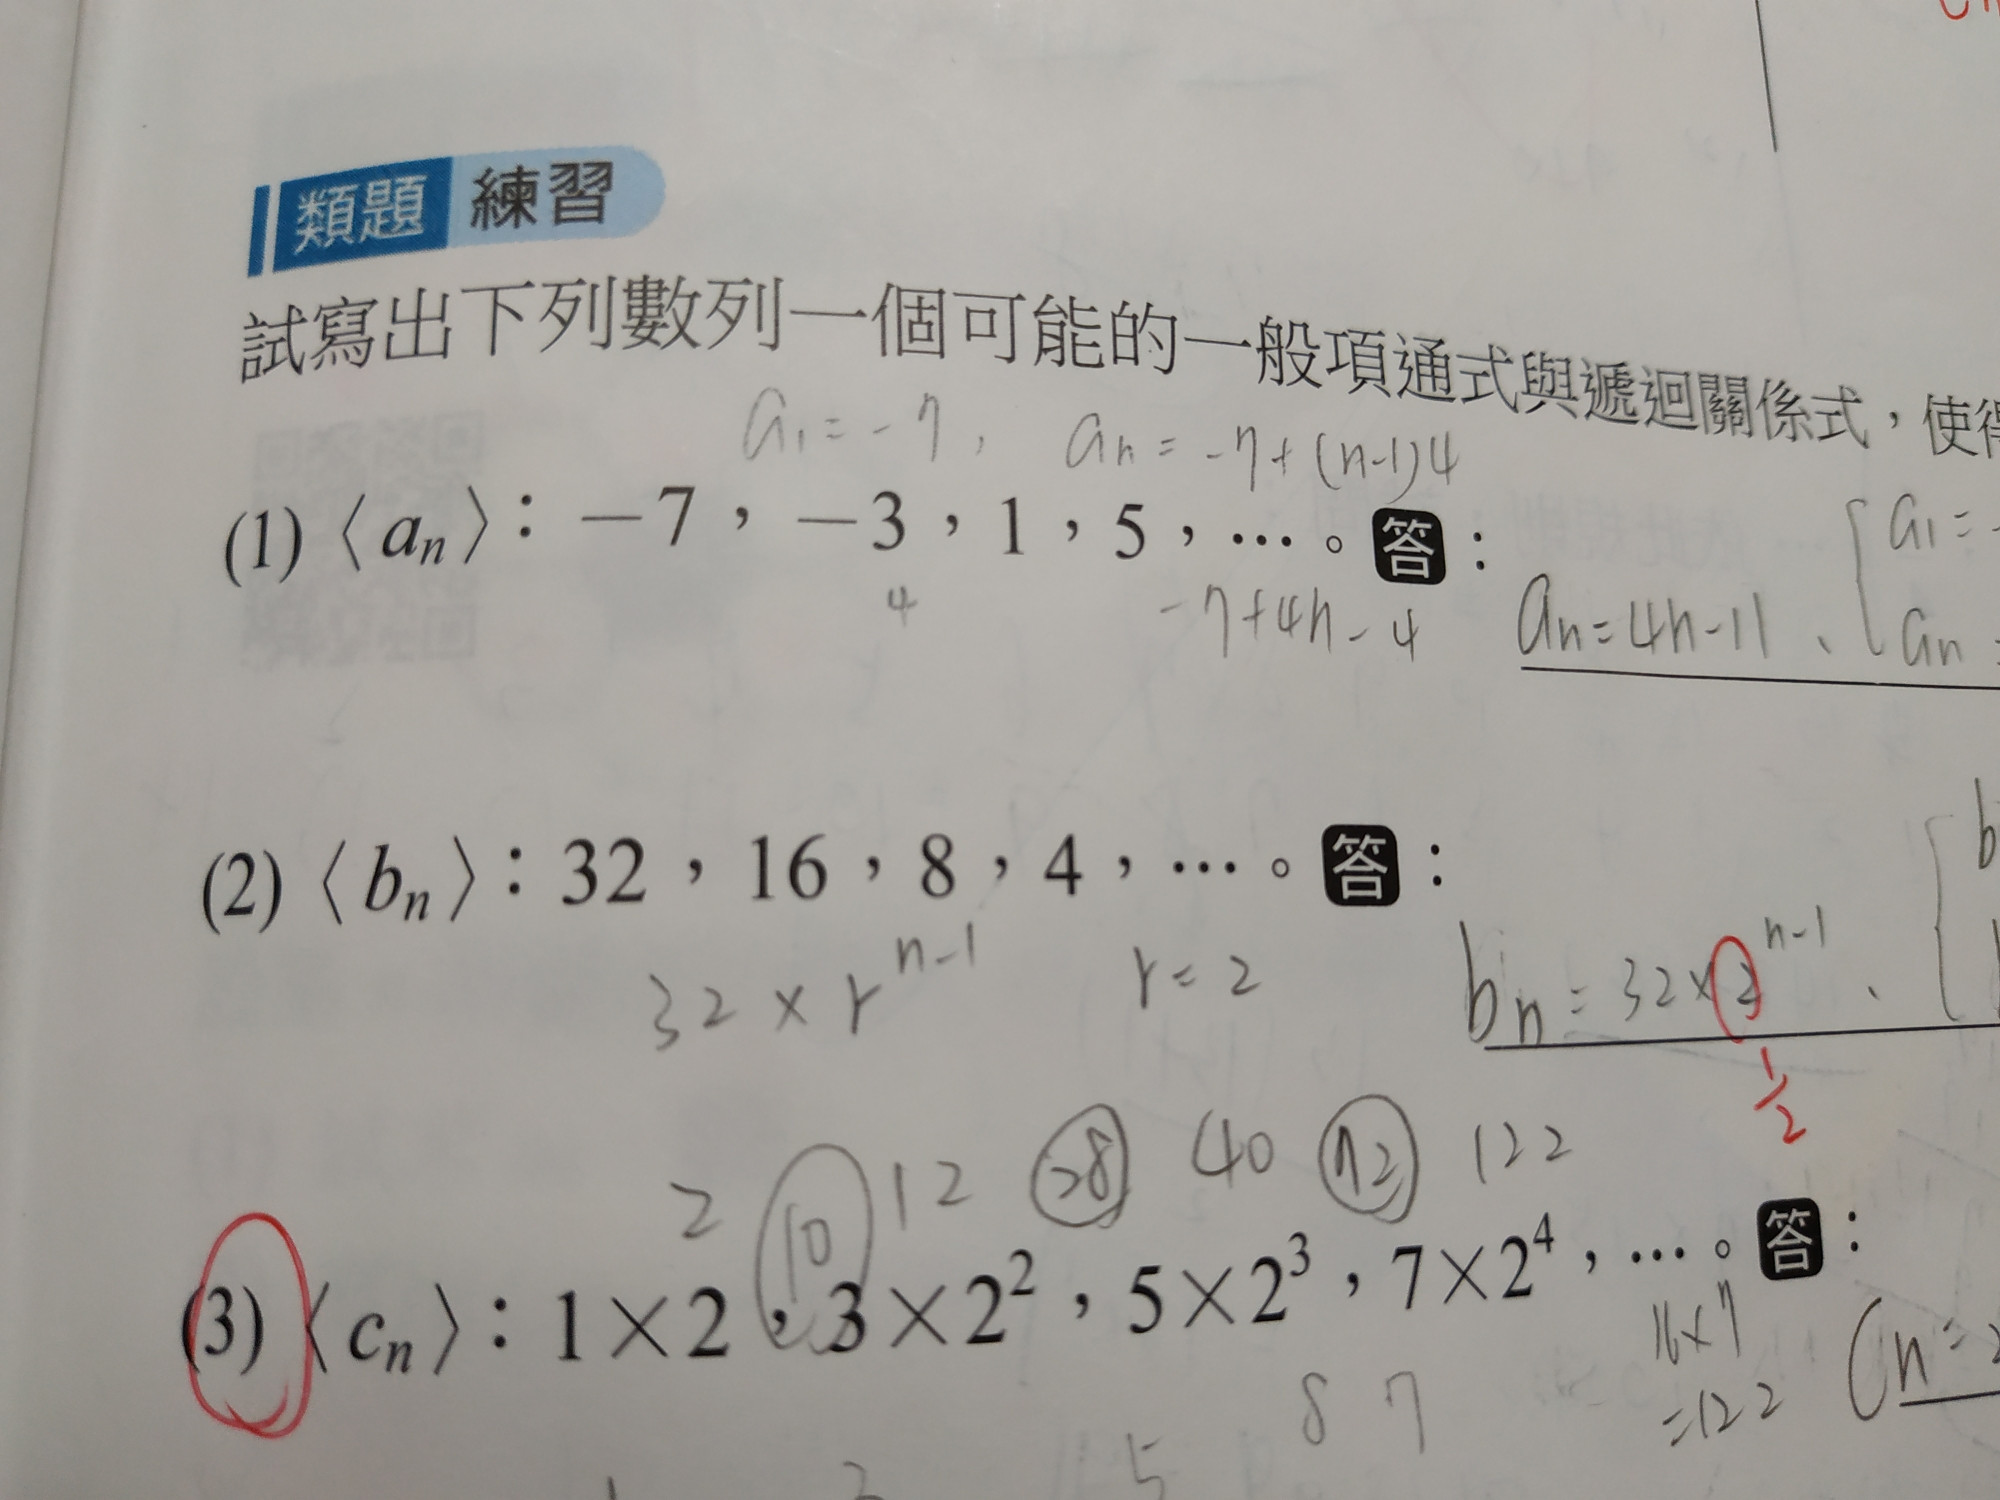 類題 練習
試寫出下列數列一個可能的一般項通式與遞迴關係式，使得
a₁=-7, aₙ=-7+(n-1)4
(1)〈aₙ〉：－7，－3，1，5，…。答：
a₁=
4
-7+4n-4
aₙ=4n-11、
aₙ=
(2)〈bₙ〉：32，16，8，4，…。答：
b
32×rⁿ⁻¹
r=2
bₙ=32×2ⁿ⁻¹、
1/2
2 10 12 28 40 72 122
(3)〈cₙ〉：1×2，3×2²，5×2³，7×2⁴，…。答：
16×7
=122
Cn=2
8 7
5